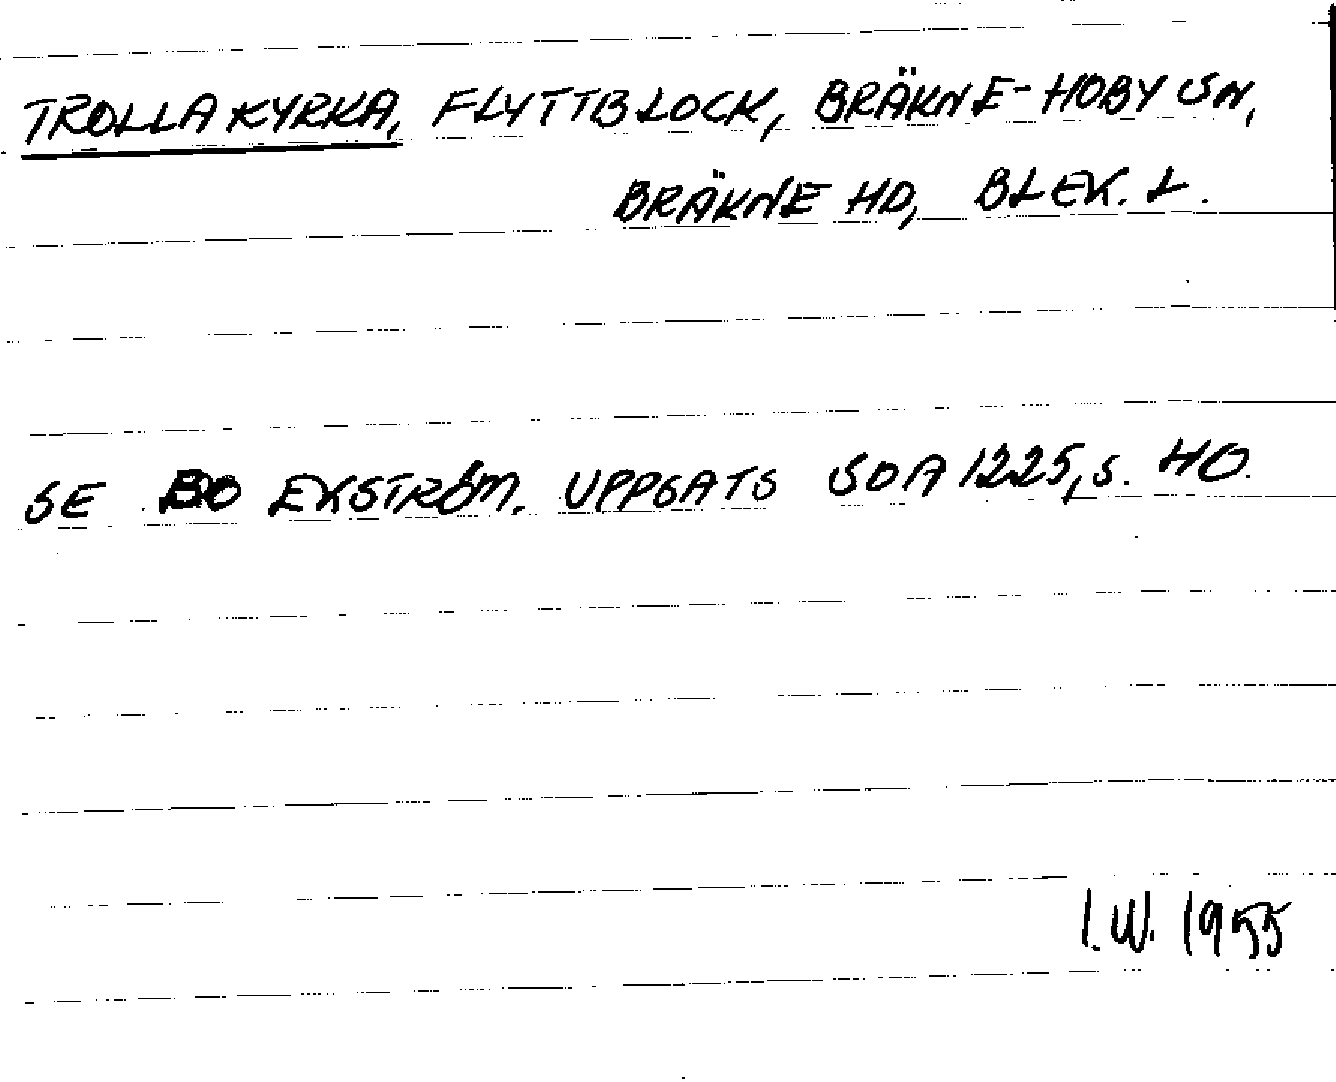 TROLLAKYRKA, FLYTTBLOCK, BRÄKNE-HOBY SN,
BRÄKNE HD, BLEK. L.
SE BO EKSTRÖM. UPPSATS SOA 1225, S. 40.
I.W. 1955